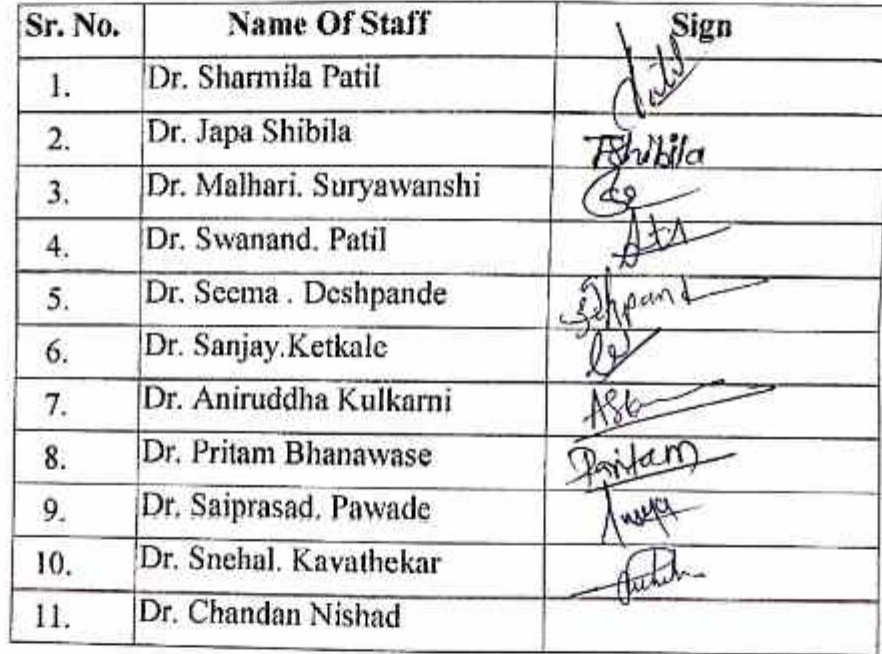 Sr. No. Name Of Staff Sign
1. Dr. Sharmila Patil Patil
2. Dr. Japa Shibila Shibila
3. Dr. Malhari. Suryawanshi
4. Dr. Swanand. Patil
5. Dr. Seema . Deshpande
6. Dr. Sanjay.Ketkale
7. Dr. Aniruddha Kulkarni
8. Dr. Pritam Bhanawase Pritam
9. Dr. Saiprasad. Pawade
10. Dr. Snehal. Kavathekar
11. Dr. Chandan Nishad